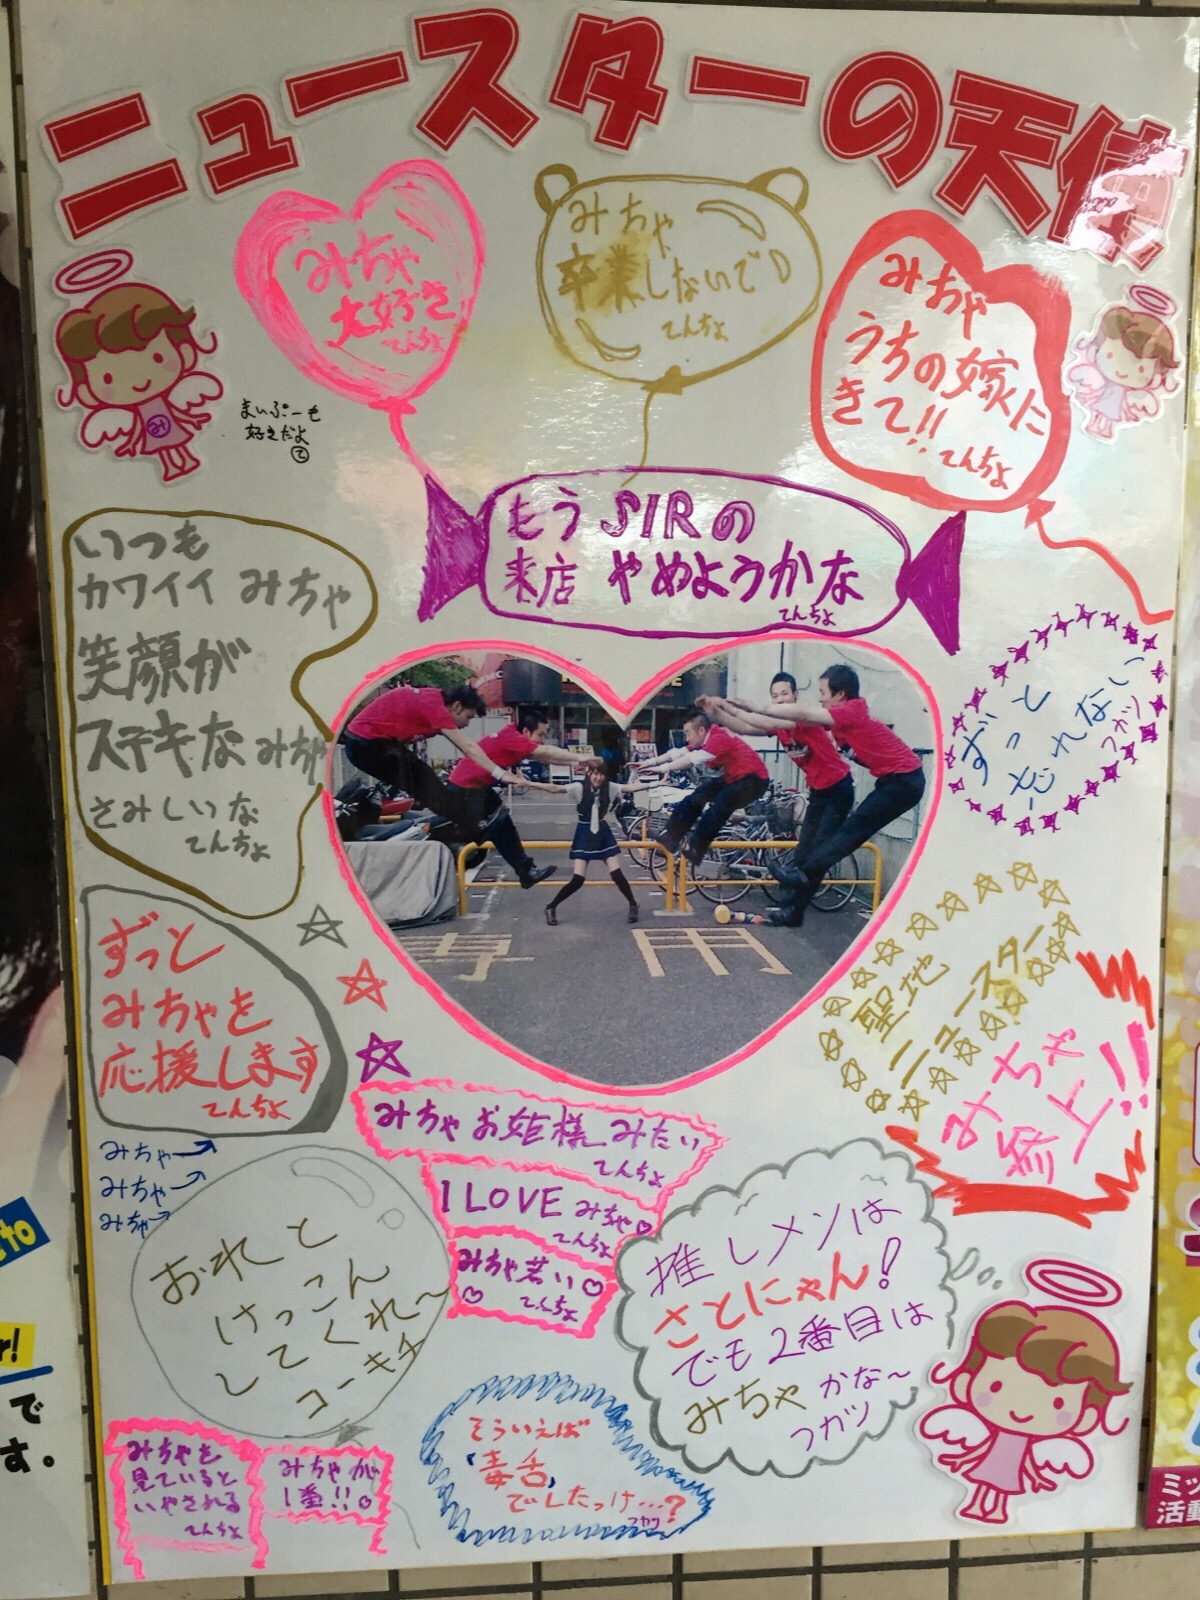 ニュースターの天使
みちゃ
大好き
てんちょ
みちゃ
卒業しないで
てんちょ
みちゃ
うちの嫁に
きて!!
てんちょ
まいぷーも
好きだよ
て
もう SIRの
来店 やめようかな
てんちょ
いつも
カワイイ みちゃ
笑顔が
ステキな みちゃ
さみしいな
てんちょ
ずっと
フカツ
専用
ずっと
みちゃを
応援します
てんちょ
聖地
ニュースター
みちゃ
参上!!
みちゃお姫様みたい
てんちょ
I LOVE みちゃ♡
てんちょ
みちゃ若い♡
♡ てんちょ
みちゃ→
みちゃ→
みちゃ→
おれと
けっこん
してくれ〜
コーキチ
推しメンは
さとにゃん!
でも2番目は
みちゃ かな〜
フカツ
みちゃを
見ていると
いやされる
てんちょ
みちゃが
1番!!♡
そういえば
「毒舌」
でしたっけ…?
フカツ
to
r!
で
す。
ミッ
活動